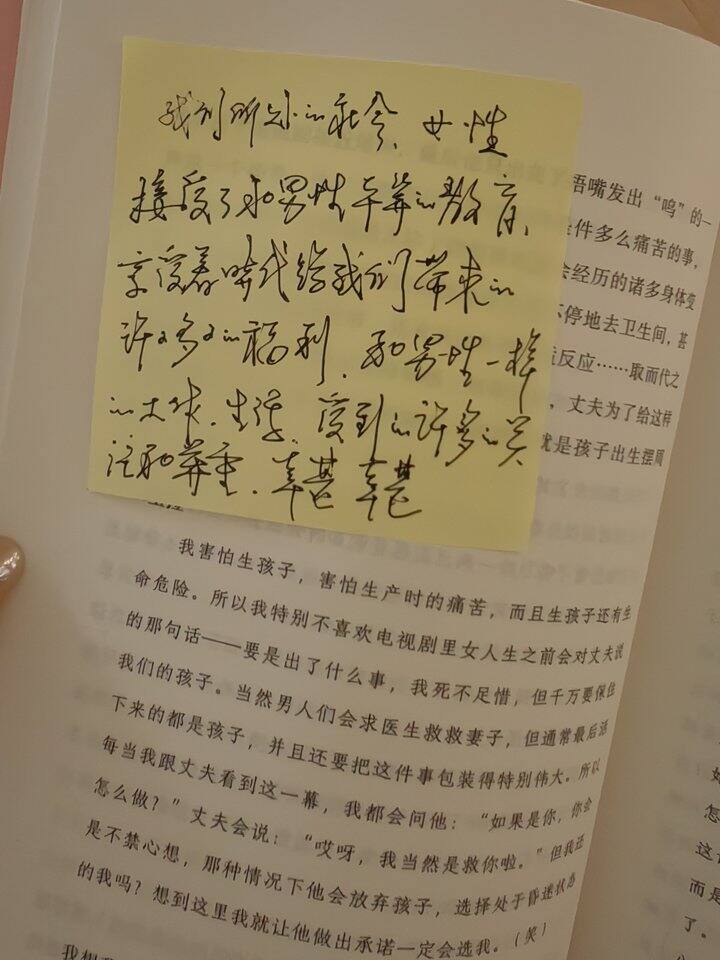 我们所处的社会、女性
接受了和男性平等的教育、
享受着时代给我们带来的
许许多多的福利、和男性一样
的工作、生活、受到的许多的关
注和尊重、幸甚幸甚
捂嘴发出“呜”的一
件多么痛苦的事,
会经历的诸多身体变
不停地去卫生间,甚
反应……取而代之
,丈夫为了给这样
就是孩子出生摆周
我害怕生孩子,害怕生产时的痛苦,而且生孩子还有生
命危险。所以我特别不喜欢电视剧里女人生之前会对丈夫说
的那句话——要是出了什么事,我死不足惜,但千万要保住
我们的孩子。当然男人们会求医生救救妻子,但通常最后活
下来的都是孩子,并且还要把这件事包装得特别伟大。所以
每当我跟丈夫看到这一幕,我都会问他:“如果是你,你会
怎么做?”丈夫会说:“哎呀,我当然是救你啦。”但我还
是不禁心想,那种情况下他会放弃孩子,选择处于昏迷状态
的我吗?想到这里我就让他做出承诺一定会选我。(笑)
我想
怎
这
而是
了。